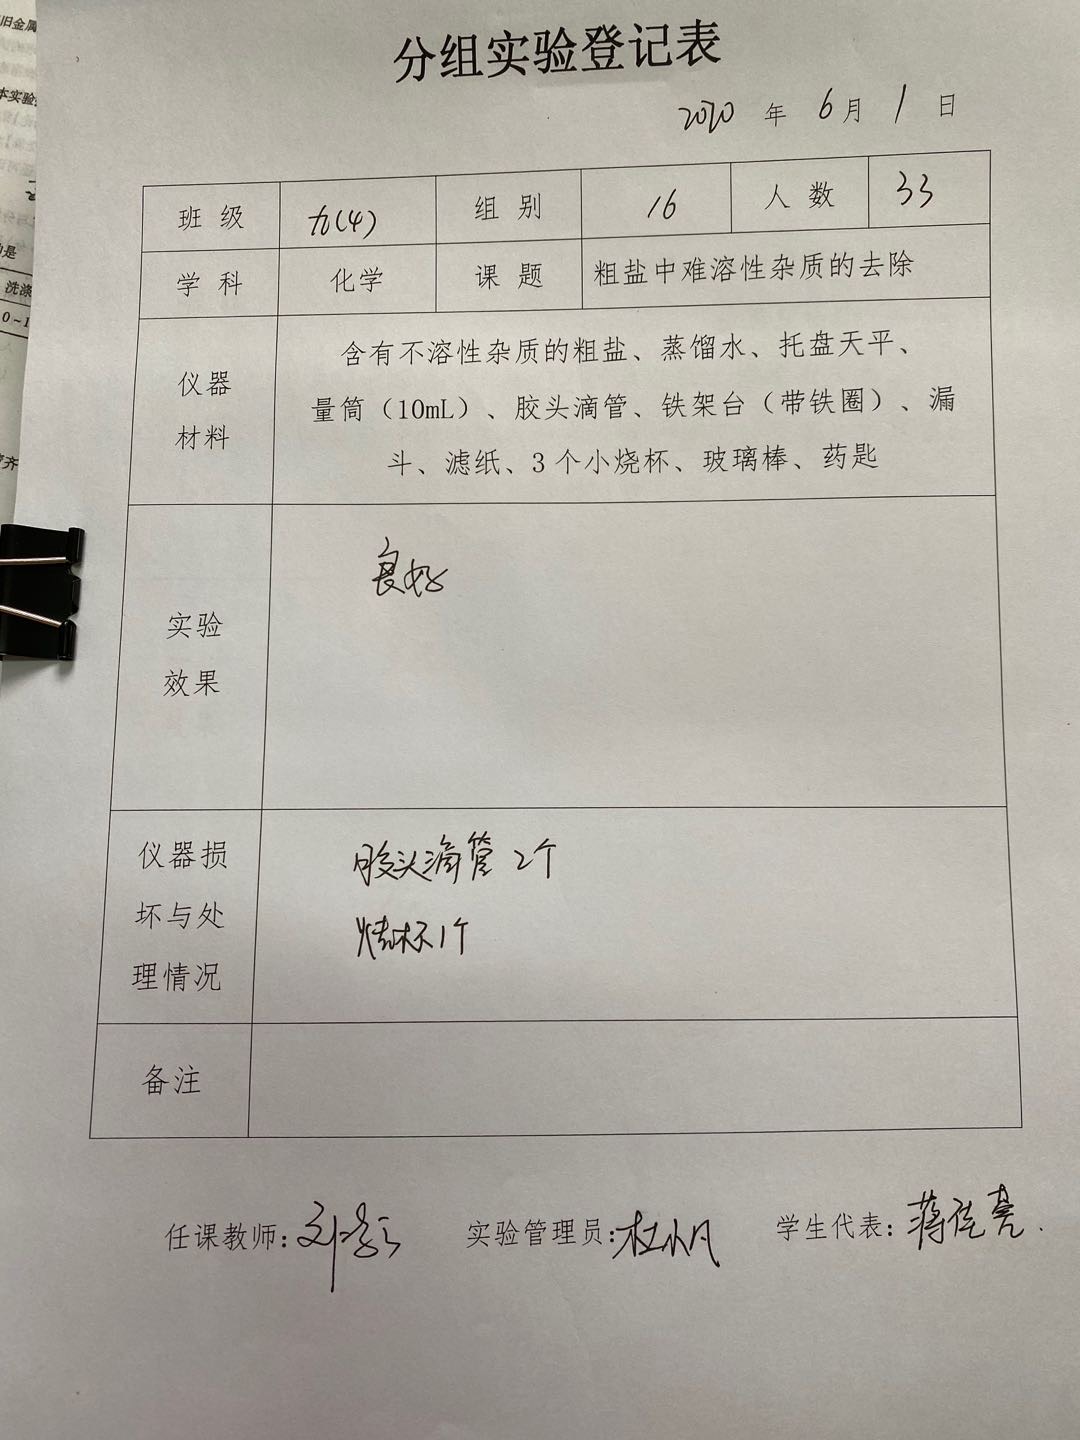 分组实验登记表
2020 年 6月 1 日
班级 九(4) 组别 16 人数 33
学科 化学 课题 粗盐中难溶性杂质的去除
仪器
材料
含有不溶性杂质的粗盐、蒸馏水、托盘天平、
量筒（10mL）、胶头滴管、铁架台（带铁圈）、漏
斗、滤纸、3个小烧杯、玻璃棒、药匙
实验
效果
良好
仪器损
坏与处
理情况
胶头滴管 2个
烧杯1个
备注
任课教师: 实验管理员:杜小凡 学生代表:
旧金属
本实验
的是
洗涤
0~1
齐